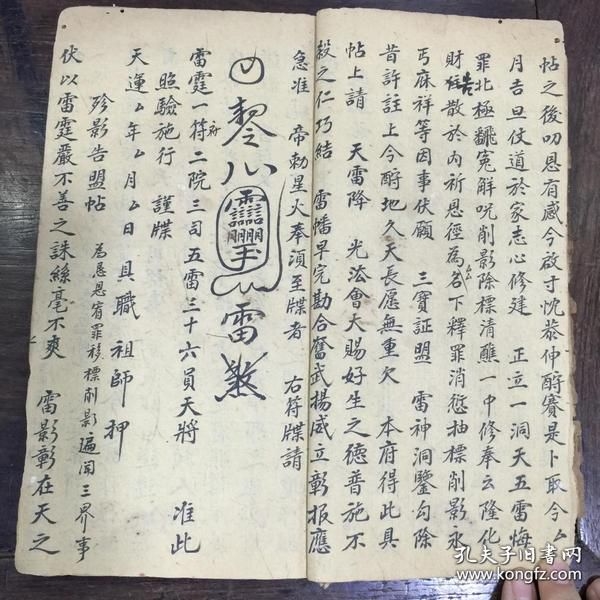 帖之後叨恩有感今啟寸忱恭伸酧賽是卜取今厶
月吉旦仗道於家志心修建　正立一洞天五雷悔
罪北極翻冤解呪削影除標清醮一中修奉云隆化
財告散於內祈恩徑為厶名下釋罪消愆抽標削影永
丐庥祥等因事伏願　三寶証盟　雷神洞鑒勾除
昔許註上今酧地久天長愿無重欠　本府得此具
帖上請　天雷降　光法會大賜好生之德普施不
殺之仁巧結　雷幡早完勘合奮武揚威立彰報應
急准　帝勅星火奉須至牒者　右符牒請
雷
雷霆一府符二院三司五雷三十六員天將　准此
照驗施行　謹牒
天運厶年厶月厶日具職　祖師押
殄影告盟帖　為恳恩宥罪移標削影遍聞三界事
伏以雷霆嚴不善之誅絲毫不爽　雷影彰在天之
孔夫子旧书网
www.kongfz.com